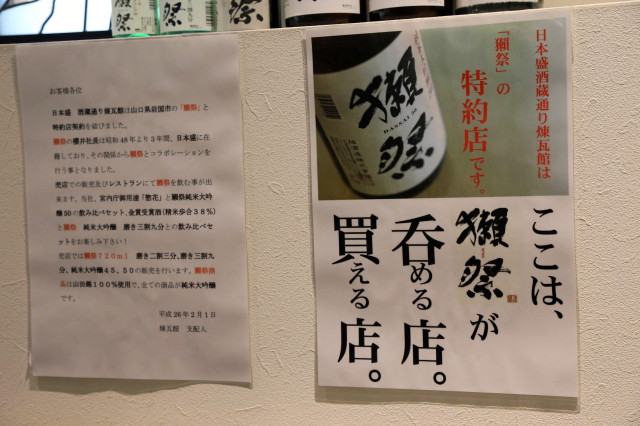 獺祭
お客様各位
日本盛 酒蔵通り煉瓦館は山口県岩国市の「獺祭」と
特約店契約を結びました。
獺祭の櫻井社長は昭和48年より3年間、日本盛に在
籍しており、その関係から獺祭とコラボレーションを
行う事となりました。
売店での販売及びレストランにて獺祭を飲む事が出
来ます。当社、宮内庁御用達「惣花」と獺祭純米大吟
醸50の飲み比べセット、金賞受賞酒(精米歩合38%)
と獺祭 純米大吟醸 磨き三割九分との飲み比べセ
ットをお楽しみ下さい!
売店では獺祭720ml 磨き二割三分、磨き三割九
分、純米大吟醸45、50の販売を行います。獺祭商
品は山田錦100%使用で、全ての商品が純米大吟醸
です。
平成26年2月1日
煉瓦館 支配人
日本盛酒蔵通り煉瓦館は
「獺祭」の
特約店です。
獺祭
DASSAI 50
ここは、
獺祭が
呑める店。
買える店。